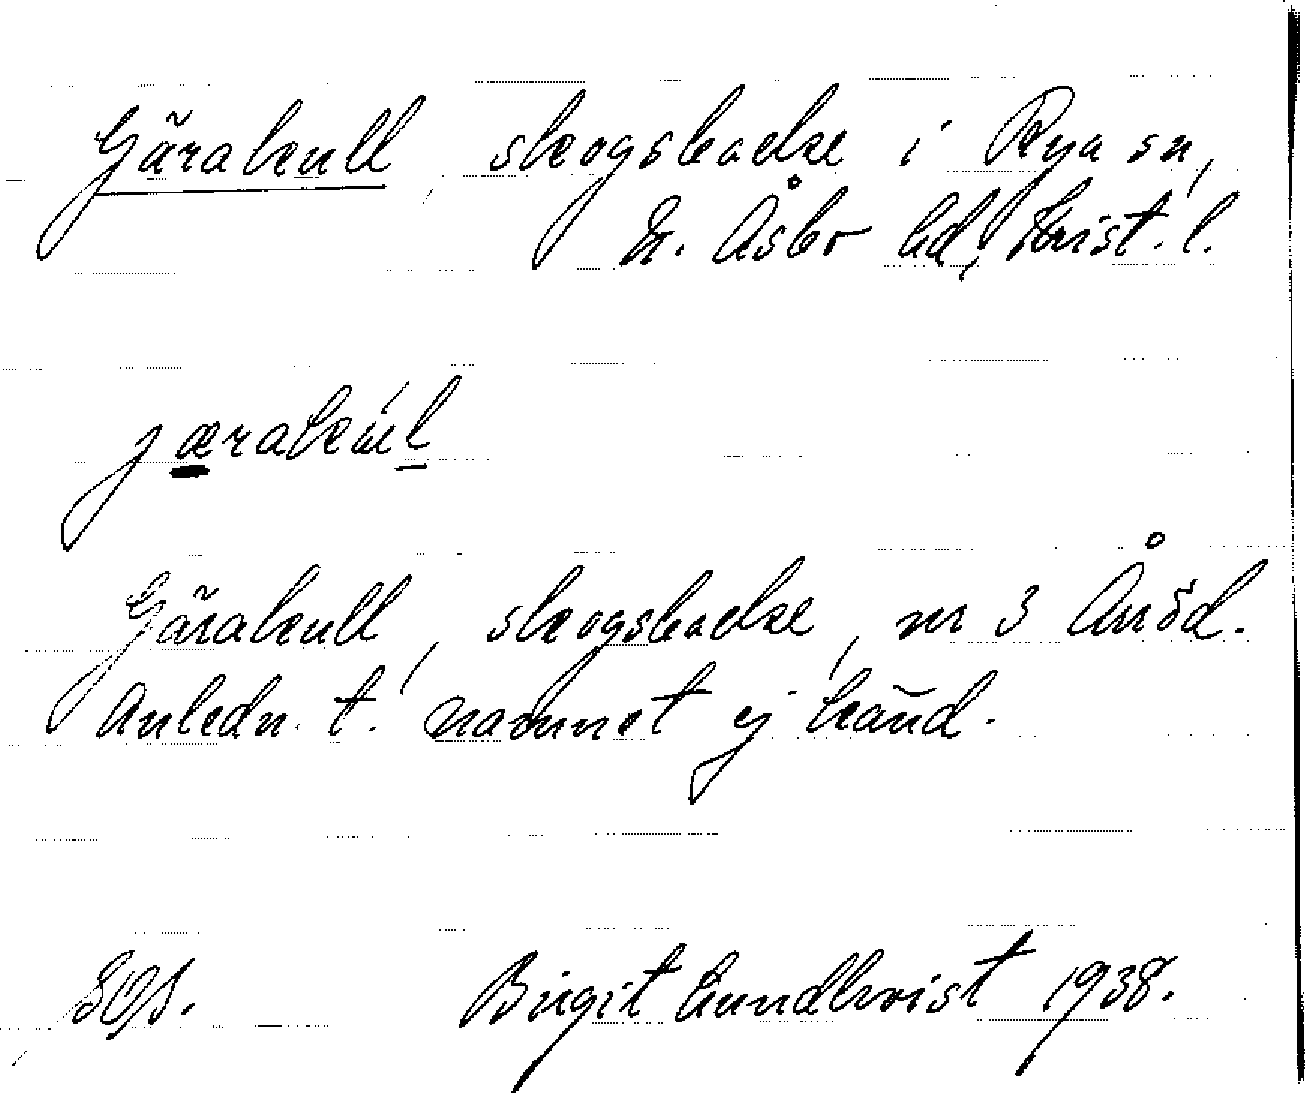 Gärakull, skogsbacke i Rya sn,
N. Åsbo hd, Krist. l.
jærakúl
Gärakull, skogsbacke, nr 3
Anledn. t. namnet ej känd.
Birgit Lundkvist 1938.